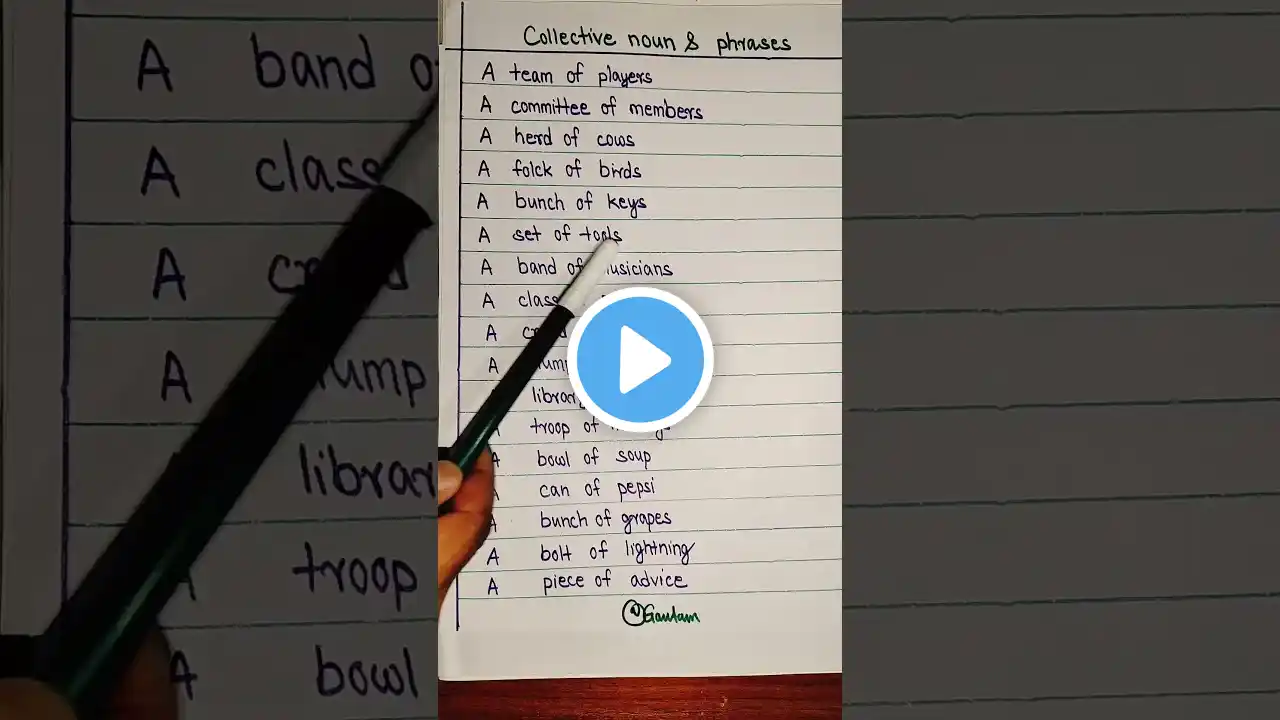 Collective noun & phrases
A team of players
A committee of members
A herd of cows
A folck of birds
A bunch of keys
A set of tools
A band of musicians
A class
A
A
library
troop of
A bowl of soup
A can of pepsi
A bunch of grapes
A bolt of lightning
A piece of advice
Gautam
A band
A class
A
A
librar
troop
A bowl